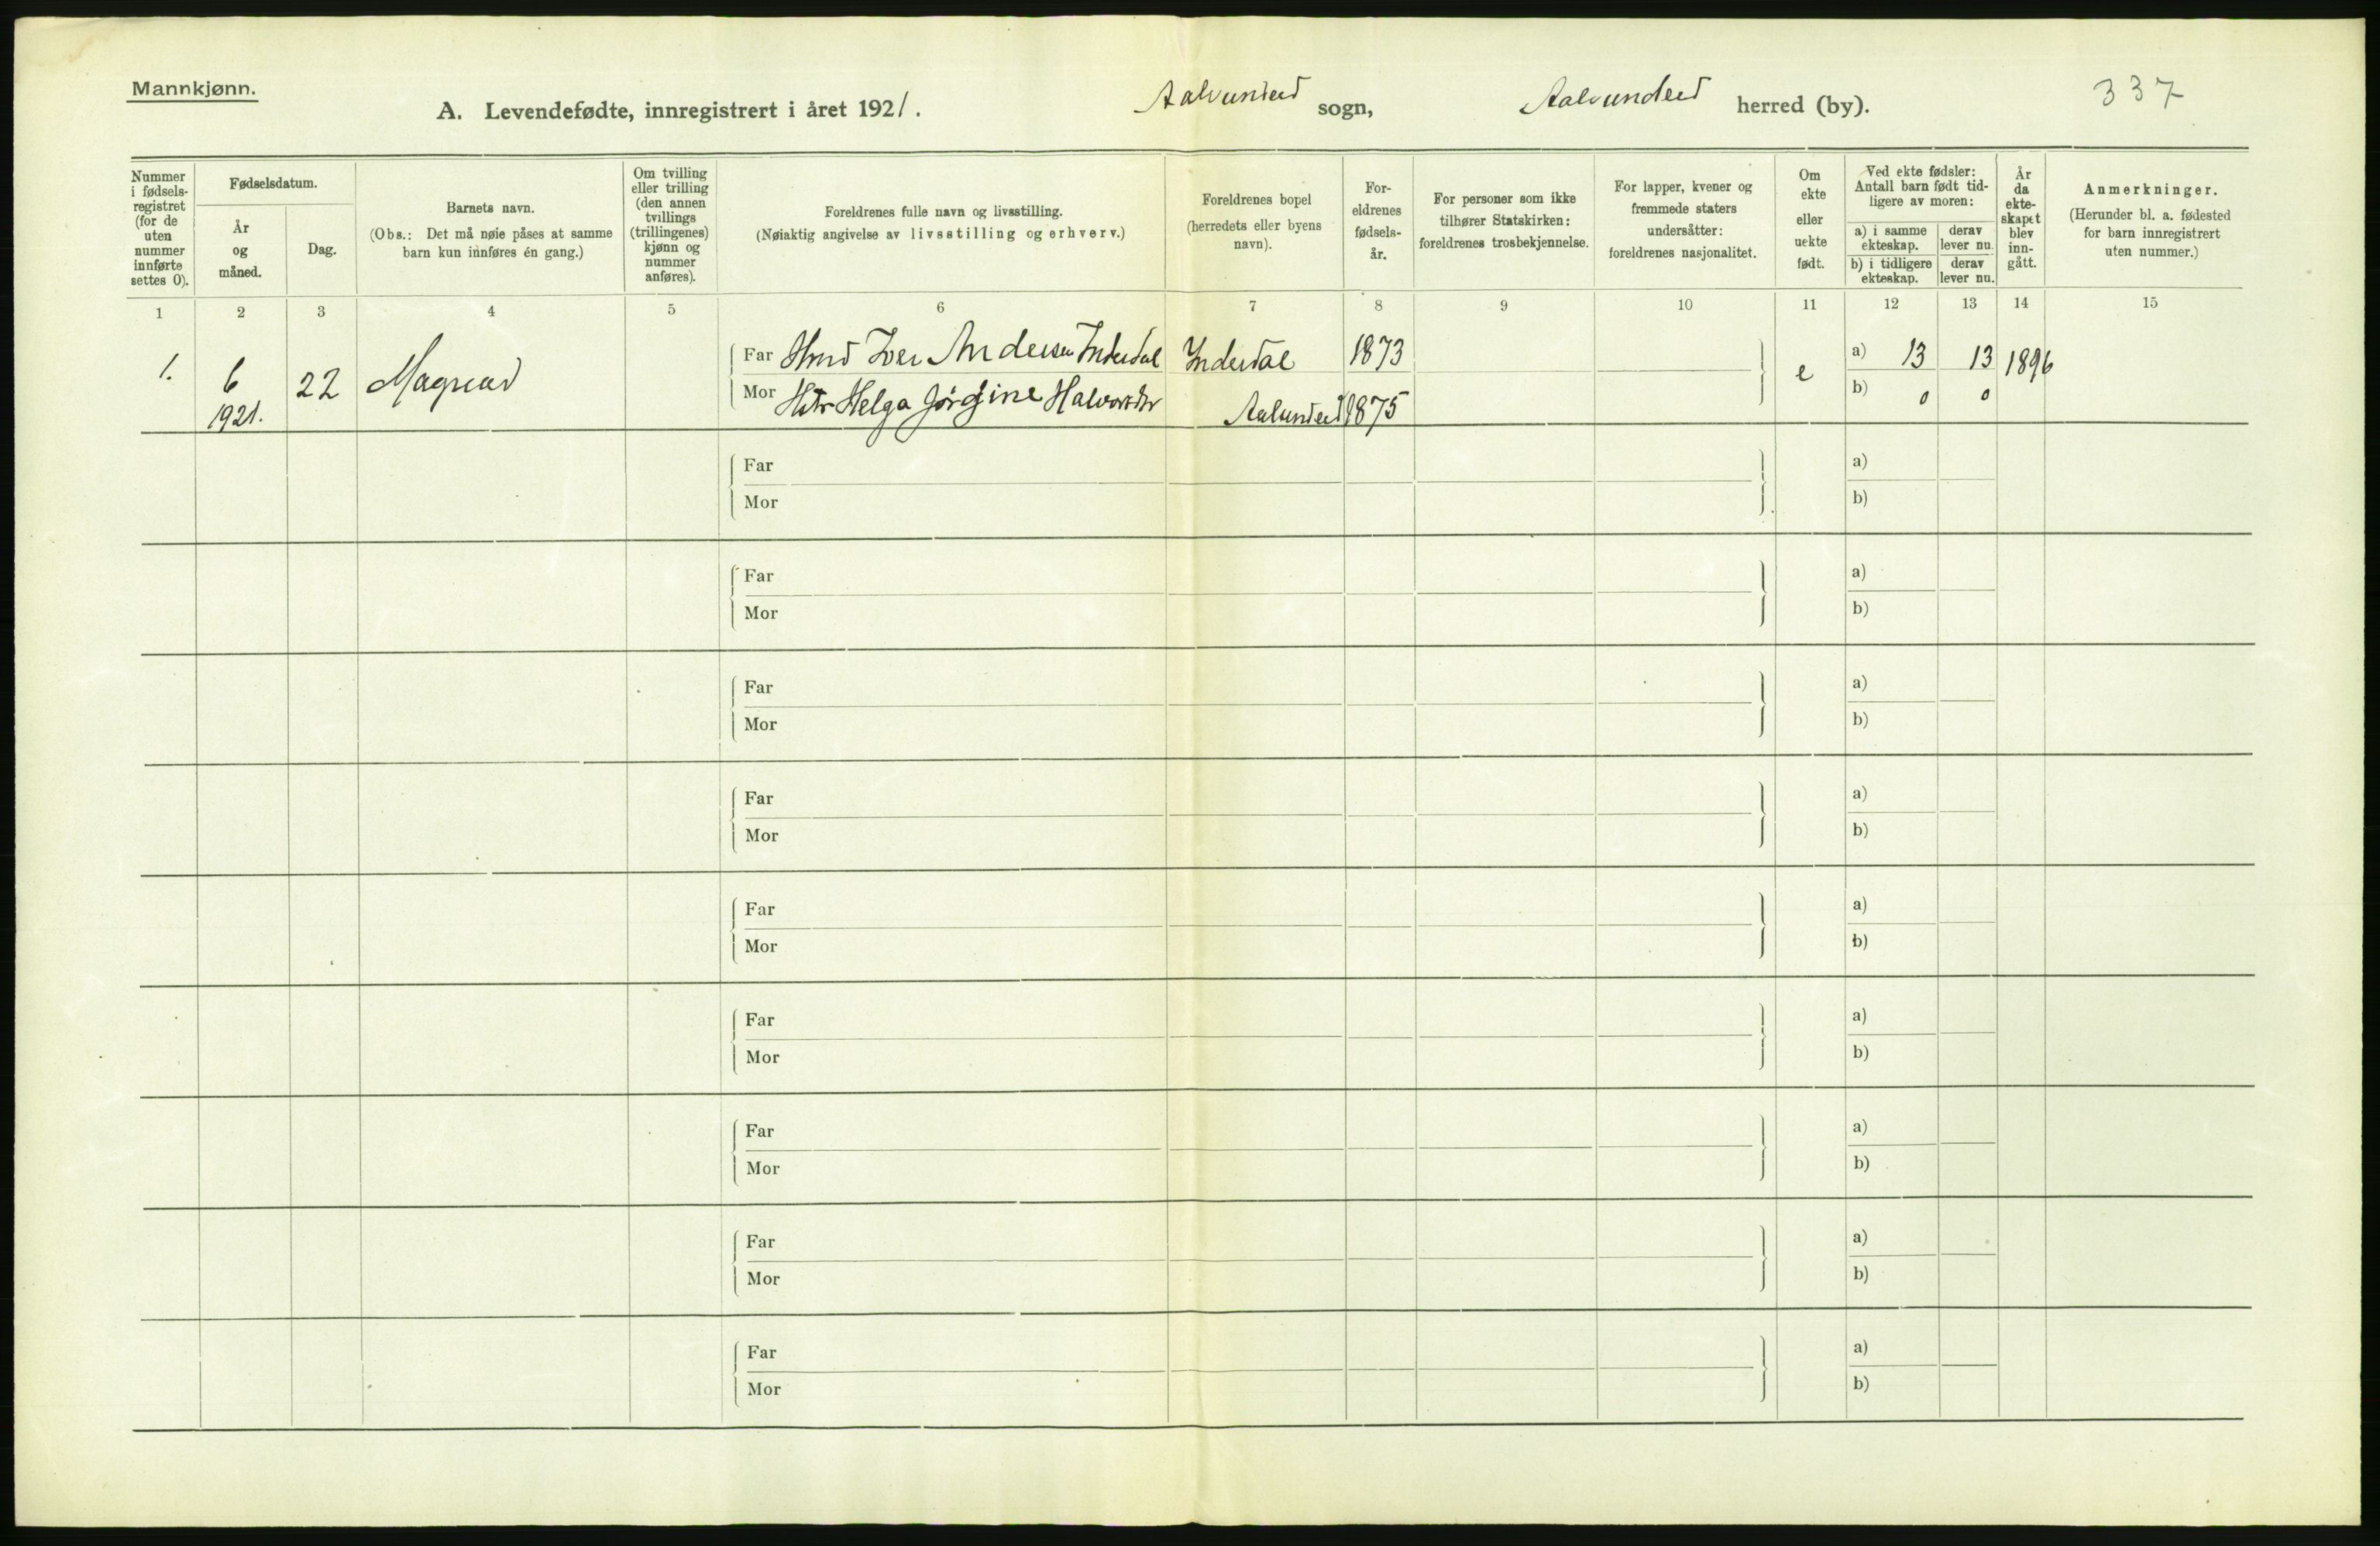 Mannkjønn.
A. Levendefødte, innregistrert i året 1921. Aalvundeid sogn, Aalvundeid herred (by). 337
Nummer i fødsels-registret (for de uten nummer innførte settes 0).
Fødselsdatum.
År og måned.
Dag.
Barnets navn.
(Obs.: Det må nøie påses at samme barn kun innføres én gang.)
Om tvilling eller trilling (den annen tvillings (trillingenes) kjønn og nummer anføres).
Foreldrenes fulle navn og livsstilling.
(Nøiaktig angivelse av livsstilling og erhverv.)
Foreldrenes bopel
(herredets eller byens navn).
For-eldrenes fødsels-år.
For personer som ikke tilhører Statskirken: foreldrenes trosbekjennelse.
For lapper, kvener og fremmede staters undersåtter: foreldrenes nasjonalitet.
Om ekte eller uekte født.
Ved ekte fødsler: Antall barn født tid-ligere av moren:
a) i samme ekteskap.
derav lever nu.
b) i tidligere ekteskap.
derav lever nu.
År da ekte-skapet blev inn-gått.
Anmerkninger.
(Herunder bl. a. fødested for barn innregistrert uten nummer.)
1 2 3 4 5 6 7 8 9 10 11 12 13 14 15
1. 6 1921. 22 Magnar
Far Iver Andersen Inderdal Inderdal 1873 e a) 13 13 1896
Mor Helga Jørgine Halvorsdtr Aalvundeid 1875 b) 0 0
Far a)
Mor b)
Far a)
Mor b)
Far a)
Mor b)
Far a)
Mor b)
Far a)
Mor b)
Far a)
Mor b)
Far a)
Mor b)
Far a)
Mor b)
Far a)
Mor b)